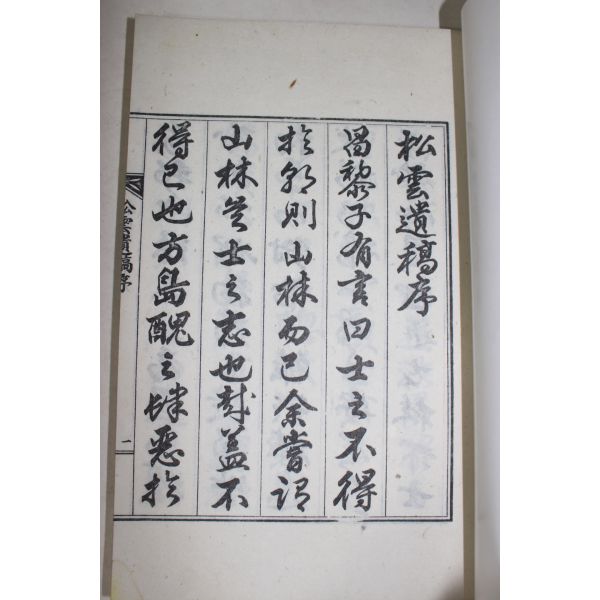 松雲遺稿序
昌黎子有言曰士之不得
於朝則山林而已余嘗謂
山林豈士之志也哉盖不
得已也方島醜之肆惡於
松雲遺稿序
一